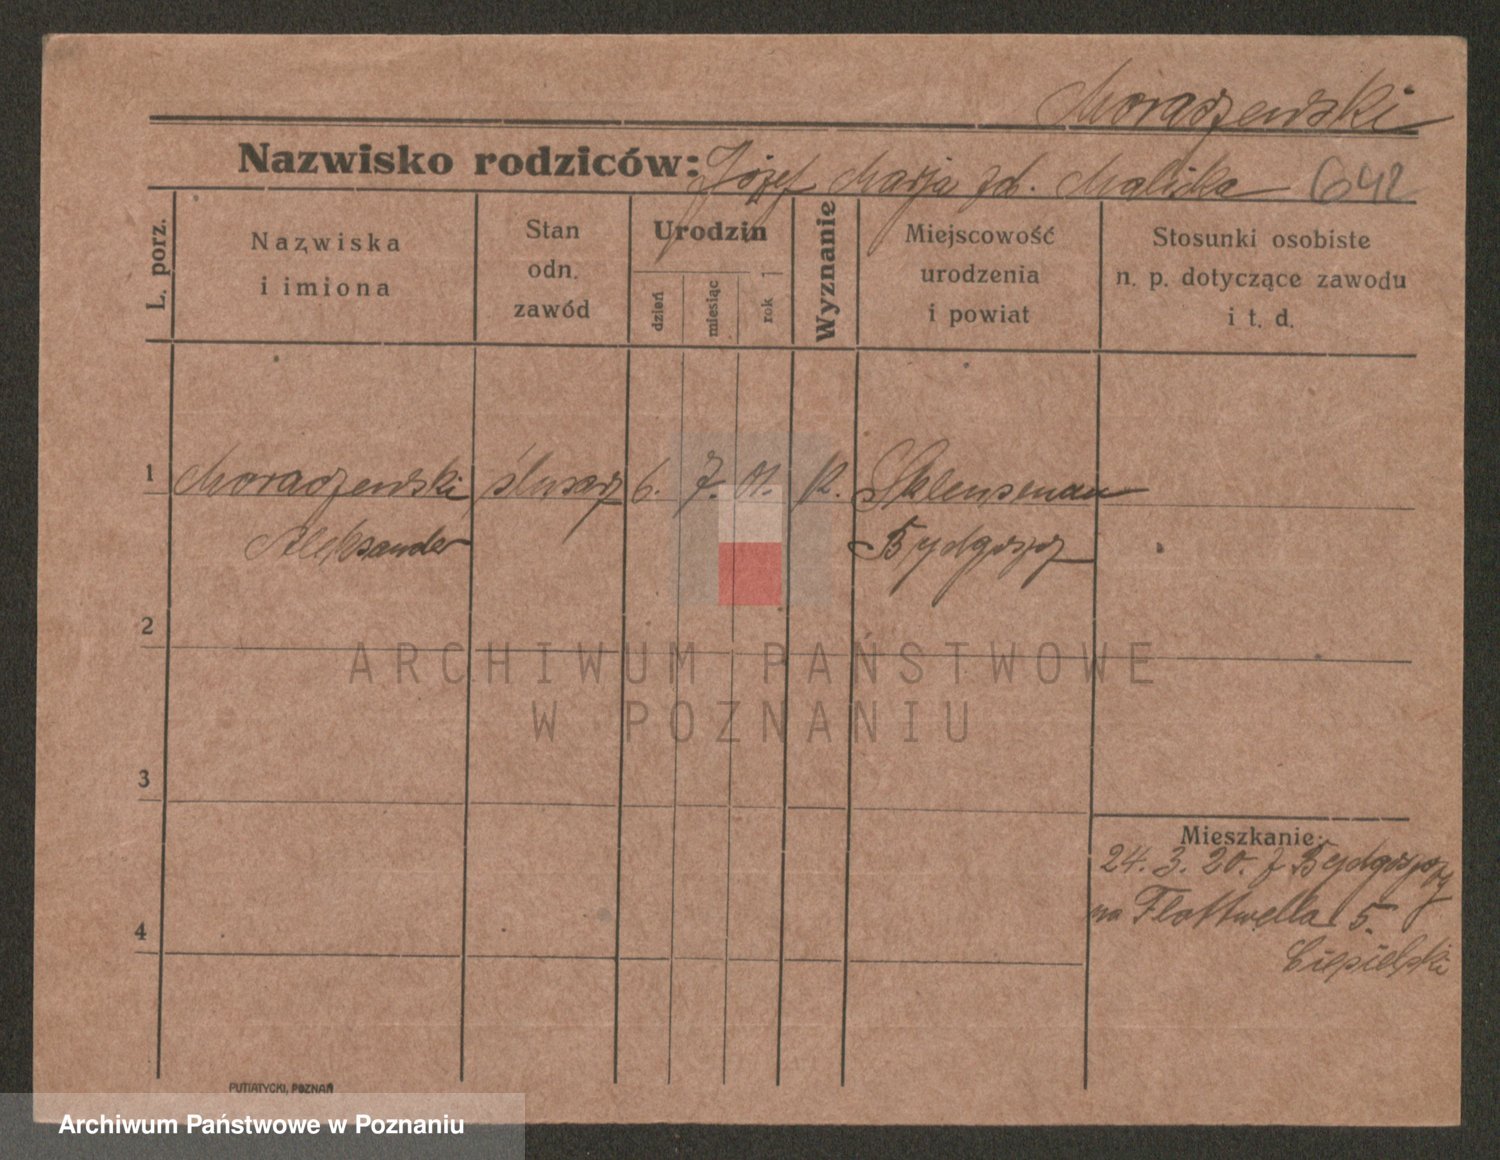 Moraczewski
Nazwisko rodziców: Józef Marja zd. Malicka 642
L. porz.
Nazwiska
i imiona
Stan
odn.
zawód
Urodzin
dzień
miesiąc
rok
Wyznanie
Miejscowość
urodzenia
i powiat
Stosunki osobiste
n. p. dotyczące zawodu
i t. d.
1 Moraczewski ślusarz 6. 7. 01. K.
Aleksander Bydgoszcz
2
ARCHIWUM PAŃSTWOWE
W POZNANIU
3
Mieszkanie:
24. 3. 20. z Bydgoszczy
na Flottwella 5.
4
Ciepielski
PUTIATYCKI, POZNAŃ
Archiwum Państwowe w Poznaniu